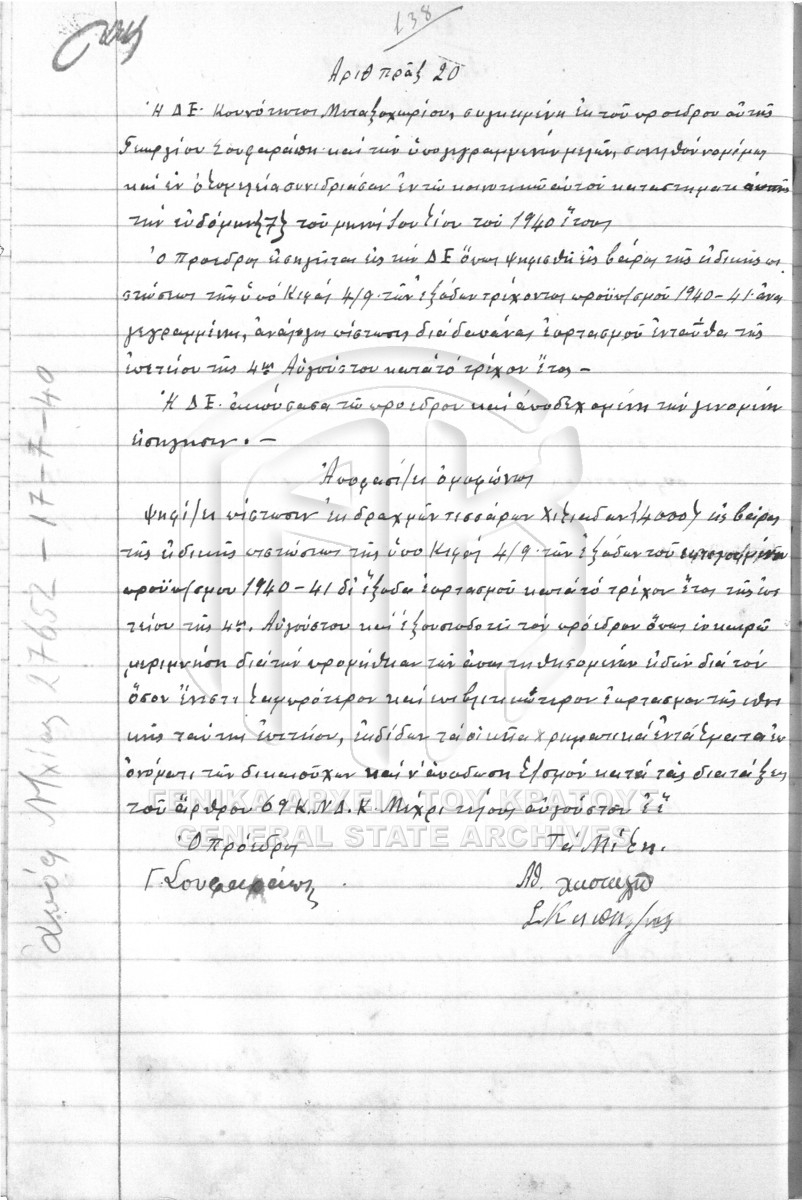 138
Αριθ πράξ 20
Ἡ Δ.Ε. Κοινότητος Μεταξοχωρίου, συγκειμένη ἐκ τοῦ προέδρου αὐτῆς
Γεωργίου Σουφαράπη καὶ τῶν ὑπογεγραμμένων μελῶν, συνελθοῦσα νομίμως
καὶ ἐν συνεδριάσαν ἐν τῷ κοινοτικῷ αὐτοῦ καταστήματι
τὴν ἑβδόμην {7} τοῦ μηνὸς Ἰουλίου τοῦ 1940 ἔτους
Ὁ πρόεδρος εἰσηγεῖται εἰς τὴν ΔΕ ὅπως ψηφισθῇ εἰς βάρος τῆς εἰδικῆς πι
στώσεως τῆς ὑπὸ Κεφάλ 4/9 τῶν ἐξόδων τρέχοντος προϋπ/σμοῦ 1940-41 ἀνα
γεγραμμένης, ἀνάλογος πίστωσις διὰ δαπάνας ἑορτασμοῦ ἐνταῦθα τῆς
ἐπετείου τῆς 4ης Αὐγούστου κατὰ τὸ τρέχον ἔτος -
Ἡ Δ.Ε. ἀκούσασα τῷ προέδρου καὶ ἀποδεχομένη τὴν γενομένην
εἰσήγησιν. -
Ἀποφασίζει ὁμοφώνως
Ψηφίζει πίστωσιν ἐκ δραχμῶν τεσσάρων χιλιάδων {4000} εἰς βάρος
τῆς εἰδικῆς πιστώσεως τῆς ὑπὸ Κεφάλ 4/9 τῶν ἐξόδων τοῦ
προϋπ/σμου 1940-41 δι' ἔξοδα ἑορτασμοῦ κατὰ τὸ τρέχον ἔτος τῆς ἐπε
τείου τῆς 4ης Αὐγούστου καὶ ἐξουσιοδοτεῖ τὸν πρόεδρον ὅπως ἐν καιρῷ
μεριμνήσῃ διὰ τὴν προμήθειαν τῶν εἰδῶν διὰ τὸν
ὅσον ἔνεστι λαμπρότερον καὶ ἐπιβλητικώτερον ἑορτασμὸν τῆς ἐθνι
κῆς ταύτης ἐπετείου, ἐκδίδων τὰ οἰκεῖα χρηματικὰ ἐντάλματα ἐπ
ὀνόματι τῶν δικαιούχων καὶ ν' ἀποδώσῃ λ/σμὸν κατὰ τὰς διατάξεις
τοῦ ἄρθρου 69 Κ.Ν.Δ.Κ. Μέχρι τέλους αὐγούστου ἐ.ἔ.
Ὁ Πρόεδρος Τὰ Μέλη.
Γ. Σουφαράπης
Αθ.
ἀπόφ Νχίας 27652-17-7-40
ΓΕΝΙΚΑ ΑΡΧΕΙΑ ΤΟΥ ΚΡΑΤΟΥΣ
GENERAL STATE ARCHIVES